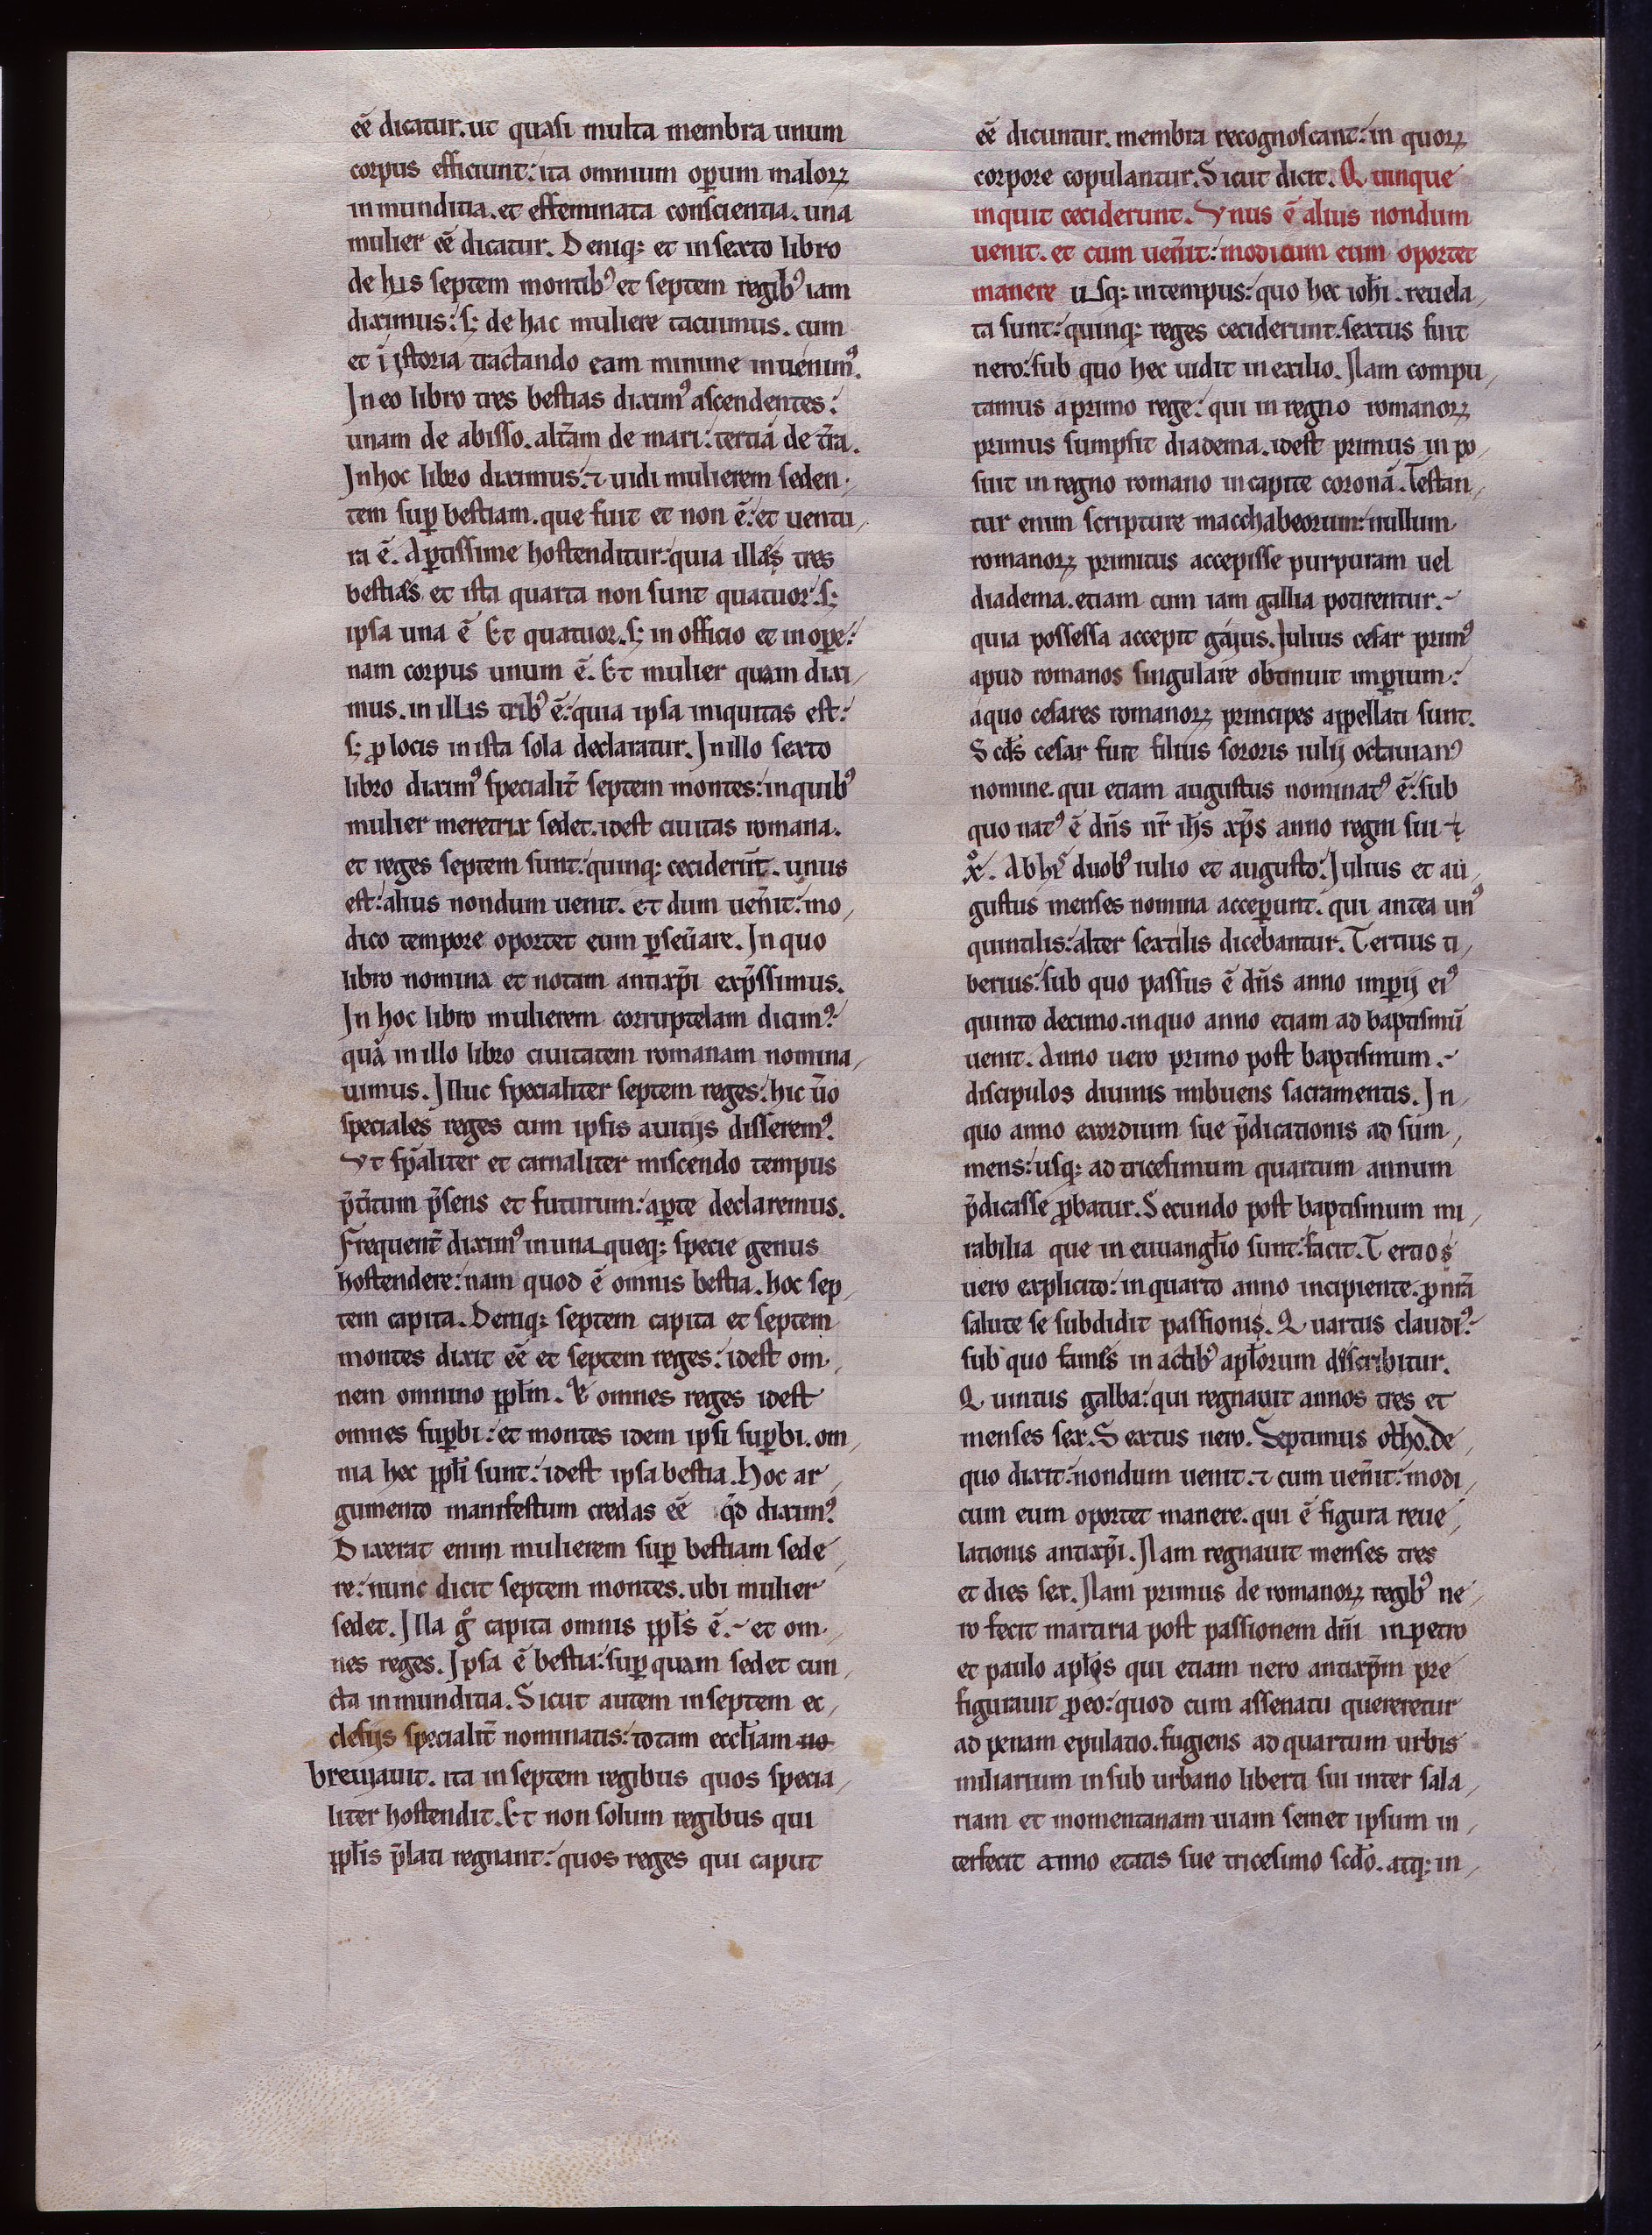 eē dicatur. ut quasi multa membra unum
corpus efficiunt: ita omnium oꝑum maloꝝ
inmunditia. et effeminata conscientia. una
mulier eē dicatur. Deniq; et in sexto libro
de his septem montibꝰ et septem regibꝰ iam
diximus: s; de hac muliere tacuimus. cum
et ī istoria tractando eam minime inuenimꝰ.
In eo libro tres bestias diximꝰ ascendentes:
unam de abisso. alt̄am de mari: tertiā de t̄ra.
In hoc libro diximus: ⁊ uidi mulierem seden
tem suꝑ bestiam. que fuit et non ē: et uentu
ra ē. Aꝑtissime hostenditur: quia illas tres
bestias et ista quarta non sunt quatuor. s;
ipsa una ē Et quatuor. s; in officio et in oꝑe:
nam corpus unum ē. Et mulier quam dixi
mus. in illis tribꝰ ē: quia ipsa iniquitas est:
s; ꝓ locis in ista sola declaratur. In illo sexto
libro diximꝰ specialit̄ septem montes: in quibꝰ
mulier meretrix sedet. idest ciuitas romana.
et reges septem sunt: quinq; ceciderūt. unus
est: alius nondum uenit. Et dum ueñit: mo
dico tempore oportet eum ꝑseūare. In quo
libro nomina et notam antixp̄i exp̄ssimus.
In hoc libro mulierem corruptelam dicimꝰ:
quā in illo libro ciuitatem romanam nomina
uimus. Illuc specialiter septem reges: hic ūo
speciales reges cum ipsis auitijs disseremꝰ.
Vt sp̄aliter et carnaliter miscendo tempus
p̄t̄itum p̄sens et futurum: aꝑte declaremus.
Frequent̄ diximꝰ in una queq; specie genus
hostendere: nam quod ē omnis bestia. hoc sep
tem capita. Deniq; septem capita et septem
montes dixit eē et septem reges: idest om
nem omnino pp̄lm. omnes reges idest
omnes suꝑbi: et montes idem ipsi suꝑbi. om
nia hec pp̄li sunt: idest ipsa bestia. Hoc ar
gumento manifestum credas eē qd̄ diximꝰ.
Dixerat enim mulierem suꝑ bestiam sede
re: nunc dicit septem montes. ubi mulier
sedet. Illa gͦ capita omnis pp̄ls ē. et om
nes reges. Ipsa ē bestia: suꝑ quam sedet cun
cta inmunditia. Sicut autem in septem ec
clesijs specialit̄ nominatis: totam eccl̄iam no
breuiauit. ita in septem regibus quos specia
liter hostendit. Et non solum regibus qui
pp̄lis p̄lati regnant: quos reges qui caput
eē dicuntur. membra recognoscant: in quoꝝ
corpore copulantur. Sicut dicit. Quinque
inquit ceciderunt. Vnus ē alius nondum
uenit. et cum ueñit: modicum eum oportet
manere usq; in tempus: quo hec ioh̄i. reuela
ta sunt: quinq; reges ceciderunt. sextus fuit
nero: sub quo hec uidit in exilio. Nam compu
tamus a primo rege: qui in regno romanoꝝ
primus sumpsit diadema. idest primus in po
suit in regno romano in capite coronā. Testan
tur enim scripture macchabeorum: nullum
romanoꝝ primitus accepisse purpuram uel
diadema. etiam cum iam gallia potirentur.
quia possessa accepit gajus. Julius cesar primꝰ
apud romanos singulare obtinuit imꝑium:
a quo cesares romanoꝝ principes appellati sunt.
Scd̄s cesar fuit filius sororis iulij octauianꝰ
nomine. qui etiam augustus nominatꝰ ē: sub
quo natꝰ ē dn̄s nr̄ ih̄s xp̄s anno regni sui ⁊
xͦ. Ab his duobꝰ iulio et augusto: Julius et au
gustus menses nomina acceꝑunt. qui antea unꝰ
quintilis: alter sextilis dicebantur. Tertius ti
berius: sub quo passus ē dn̄s anno imꝑij eiꝰ
quinto decimo. in quo anno etiam ad baptismū
uenit. Anno uero primo post baptismum.
discipulos diuinis imbuens sacramentis. In
quo anno exordium sue p̄dicationis adsum
mens: usq; ad tricesimum quartum annum
p̄dicasse ꝓbatur. Secundo post baptismum mi
rabilia que in euuangl̄io sunt: facit. Tertio
uero explicito: in quarto anno incipiente. ꝓ nr̄a
salute se subdidit passionis. Quartus claudiꝰ:
sub quo famis in actibꝰ apl̄orum discribitur.
Quintus galba: qui regnauit annos tres et
menses sex. Sextus nero. Septimus otho. de
quo dixit: nondum uenit. ⁊ cum ueñit: modi
cum eum oportet manere. qui ē figura reue
lationis antixp̄i. Nam regnauit menses tres
et dies sex. Nam primus de romanoꝝ regibꝰ ne
ro fecit martiria post passionem dn̄i in petro
et paulo apl̄os qui etiam nero antixp̄m pre
figurauit ꝓ eo: quod cum assenatu quereretur
ad penam epulatio. fugiens ad quartum urbis
miliarium in sub urbano liberti sui inter sala
riam et momentanam uiam semet ipsum in
terfecit anno etatis sue tricesimo scd̄o. atq; in